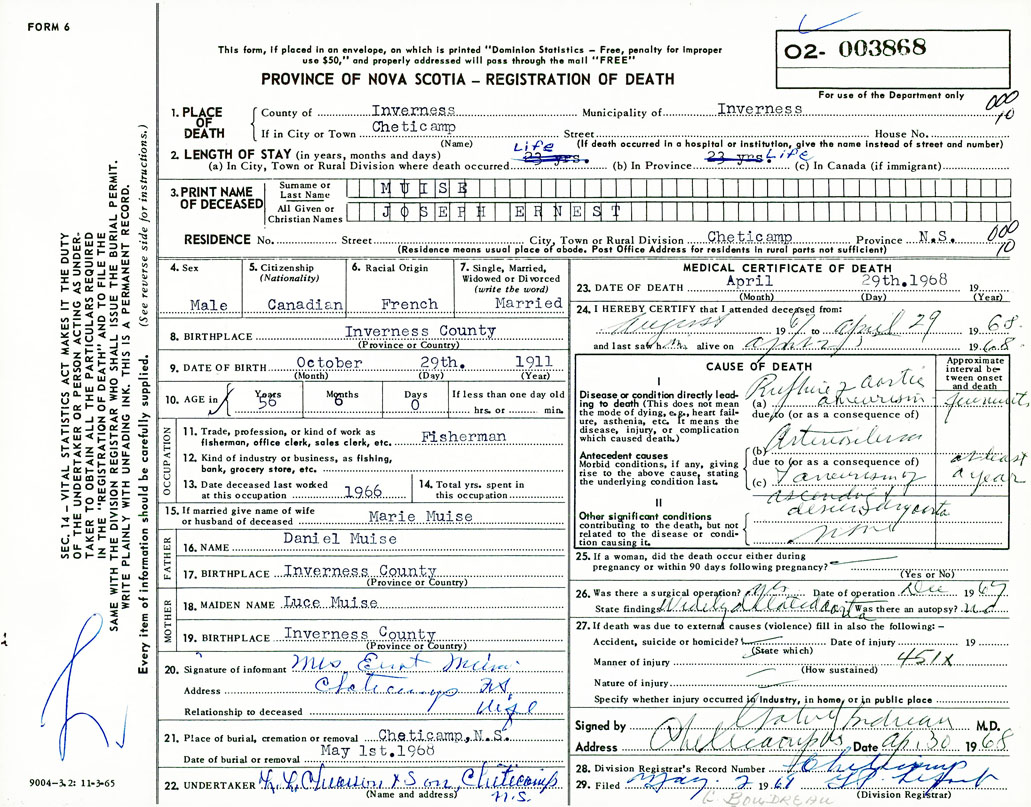 FORM 6
This form, if placed in an envelope, on which is printed "Dominion Statistics – Free, penalty for improper
use $50," and properly addressed will pass through the mail "FREE"
PROVINCE OF NOVA SCOTIA – REGISTRATION OF DEATH
O2- 003868
For use of the Department only
000
10
1. PLACE OF DEATH
County of Inverness Municipality of Inverness
If in City or Town Cheticamp Street House No.
(Name) (If death occurred in a hospital or institution, give the name instead of street and number)
2. LENGTH OF STAY (in years, months and days)
Life Life
(a) In City, Town or Rural Division where death occurred 23 yrs. (b) In Province 23 yrs. (c) In Canada (if immigrant)
3. PRINT NAME OF DECEASED
Surname or Last Name MUISE
All Given or Christian Names JOSEPH ERNEST
RESIDENCE No. Street City, Town or Rural Division Cheticamp Province N.S.
000
10
(Residence means usual place of abode. Post Office Address for residents in rural parts not sufficient)
4. Sex
Male
5. Citizenship
(Nationality)
Canadian
6. Racial Origin
French
7. Single, Married,
Widowed or Divorced
(write the word)
Married
8. BIRTHPLACE Inverness County
(Province or Country)
9. DATE OF BIRTH October 29th. 1911
(Month) (Day) (Year)
10. AGE in Years 56 Months 6 Days 0 If less than one day old
hrs. or min.
OCCUPATION
11. Trade, profession, or kind of work as
fisherman, office clerk, sales clerk, etc. Fisherman
12. Kind of industry or business, as fishing,
bank, grocery store, etc.
13. Date deceased last worked
at this occupation 1966
14. Total yrs. spent in
this occupation
15. If married give name of wife
or husband of deceased Marie Muise
FATHER
16. NAME Daniel Muise
17. BIRTHPLACE Inverness County
(Province or Country)
MOTHER
18. MAIDEN NAME Luce Muise
19. BIRTHPLACE Inverness County
(Province or Country)
20. Signature of informant Mrs Ernest Muise
Address Cheticamp N.S.
Relationship to deceased Wife
21. Place of burial, cremation or removal Cheticamp, N.S.
Date of burial or removal May 1st. 1968
22. UNDERTAKER & Son, Cheticamp
(Name and address) N.S.
MEDICAL CERTIFICATE OF DEATH
23. DATE OF DEATH April 29th.1968 19
(Month) (Day) (Year)
24. I HEREBY CERTIFY that I attended deceased from:
August 19 to April 29 1968
and last saw him alive on April 1968
CAUSE OF DEATH
Approximate
interval be-
tween onset
and death
I
Disease or condition directly lead-
ing to death (This does not mean
the mode of dying, e.g., heart fail-
ure, asthenia, etc. It means the
disease, injury, or complication
which caused death.)
(a) Rupture of aortic
aneurism
due to (or as a consequence of)
Antecedent causes
Morbid conditions, if any, giving
rise to the above cause, stating
the underlying condition last.
(b)
due to (or as a consequence of)
(c) aneurism of
ascending &
descending aorta
at least
a year
II
Other significant conditions
contributing to the death, but not
related to the disease or condi-
tion causing it.
none
25. If a woman, did the death occur either during
pregnancy or within 90 days following pregnancy?
(Yes or No)
26. Was there a surgical operation? yes Date of operation Dec 1967
State findings Widely dilated aorta Was there an autopsy? no
27. If death was due to external causes (violence) fill in also the following: –
Accident, suicide or homicide? Date of injury 19
(State which)
Manner of injury 451X
(How sustained)
Nature of injury
Specify whether injury occurred in industry, in home, or in public place
Signed by M.D.
Address Cheticamp NS Date Ap. 30 1968
28. Division Registrar's Record Number Cheticamp
29. Filed May 2 1968
(Division Registrar)
G BOUDREAU
SEC. 14 – VITAL STATISTICS ACT MAKES IT THE DUTY
OF THE UNDERTAKER OR PERSON ACTING AS UNDER-
TAKER TO OBTAIN ALL THE PARTICULARS REQUIRED
IN THE "REGISTRATION OF DEATH" AND TO FILE THE
SAME WITH THE DIVISION REGISTRAR WHO SHALL ISSUE THE BURIAL PERMIT.
WRITE PLAINLY WITH UNFADING INK. THIS IS A PERMANENT RECORD.
Every item of information should be carefully supplied. (See reverse side for instructions.)
9004-3.2: 11-3-65